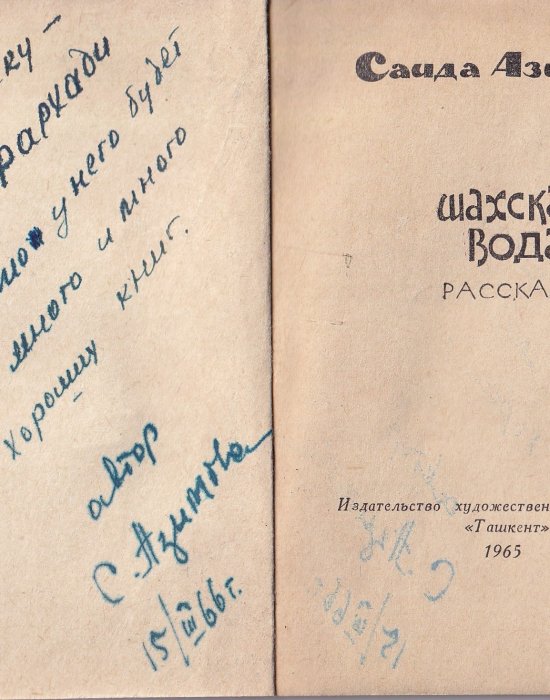 ку –
рархади
у него будет
много и много
хороших книг.
автор
С. Азимова
15/III 66 г.
Саида Ази
ШАХСКА
ВОДА
РАССКА
Издательство художествен
«Ташкент»
1965